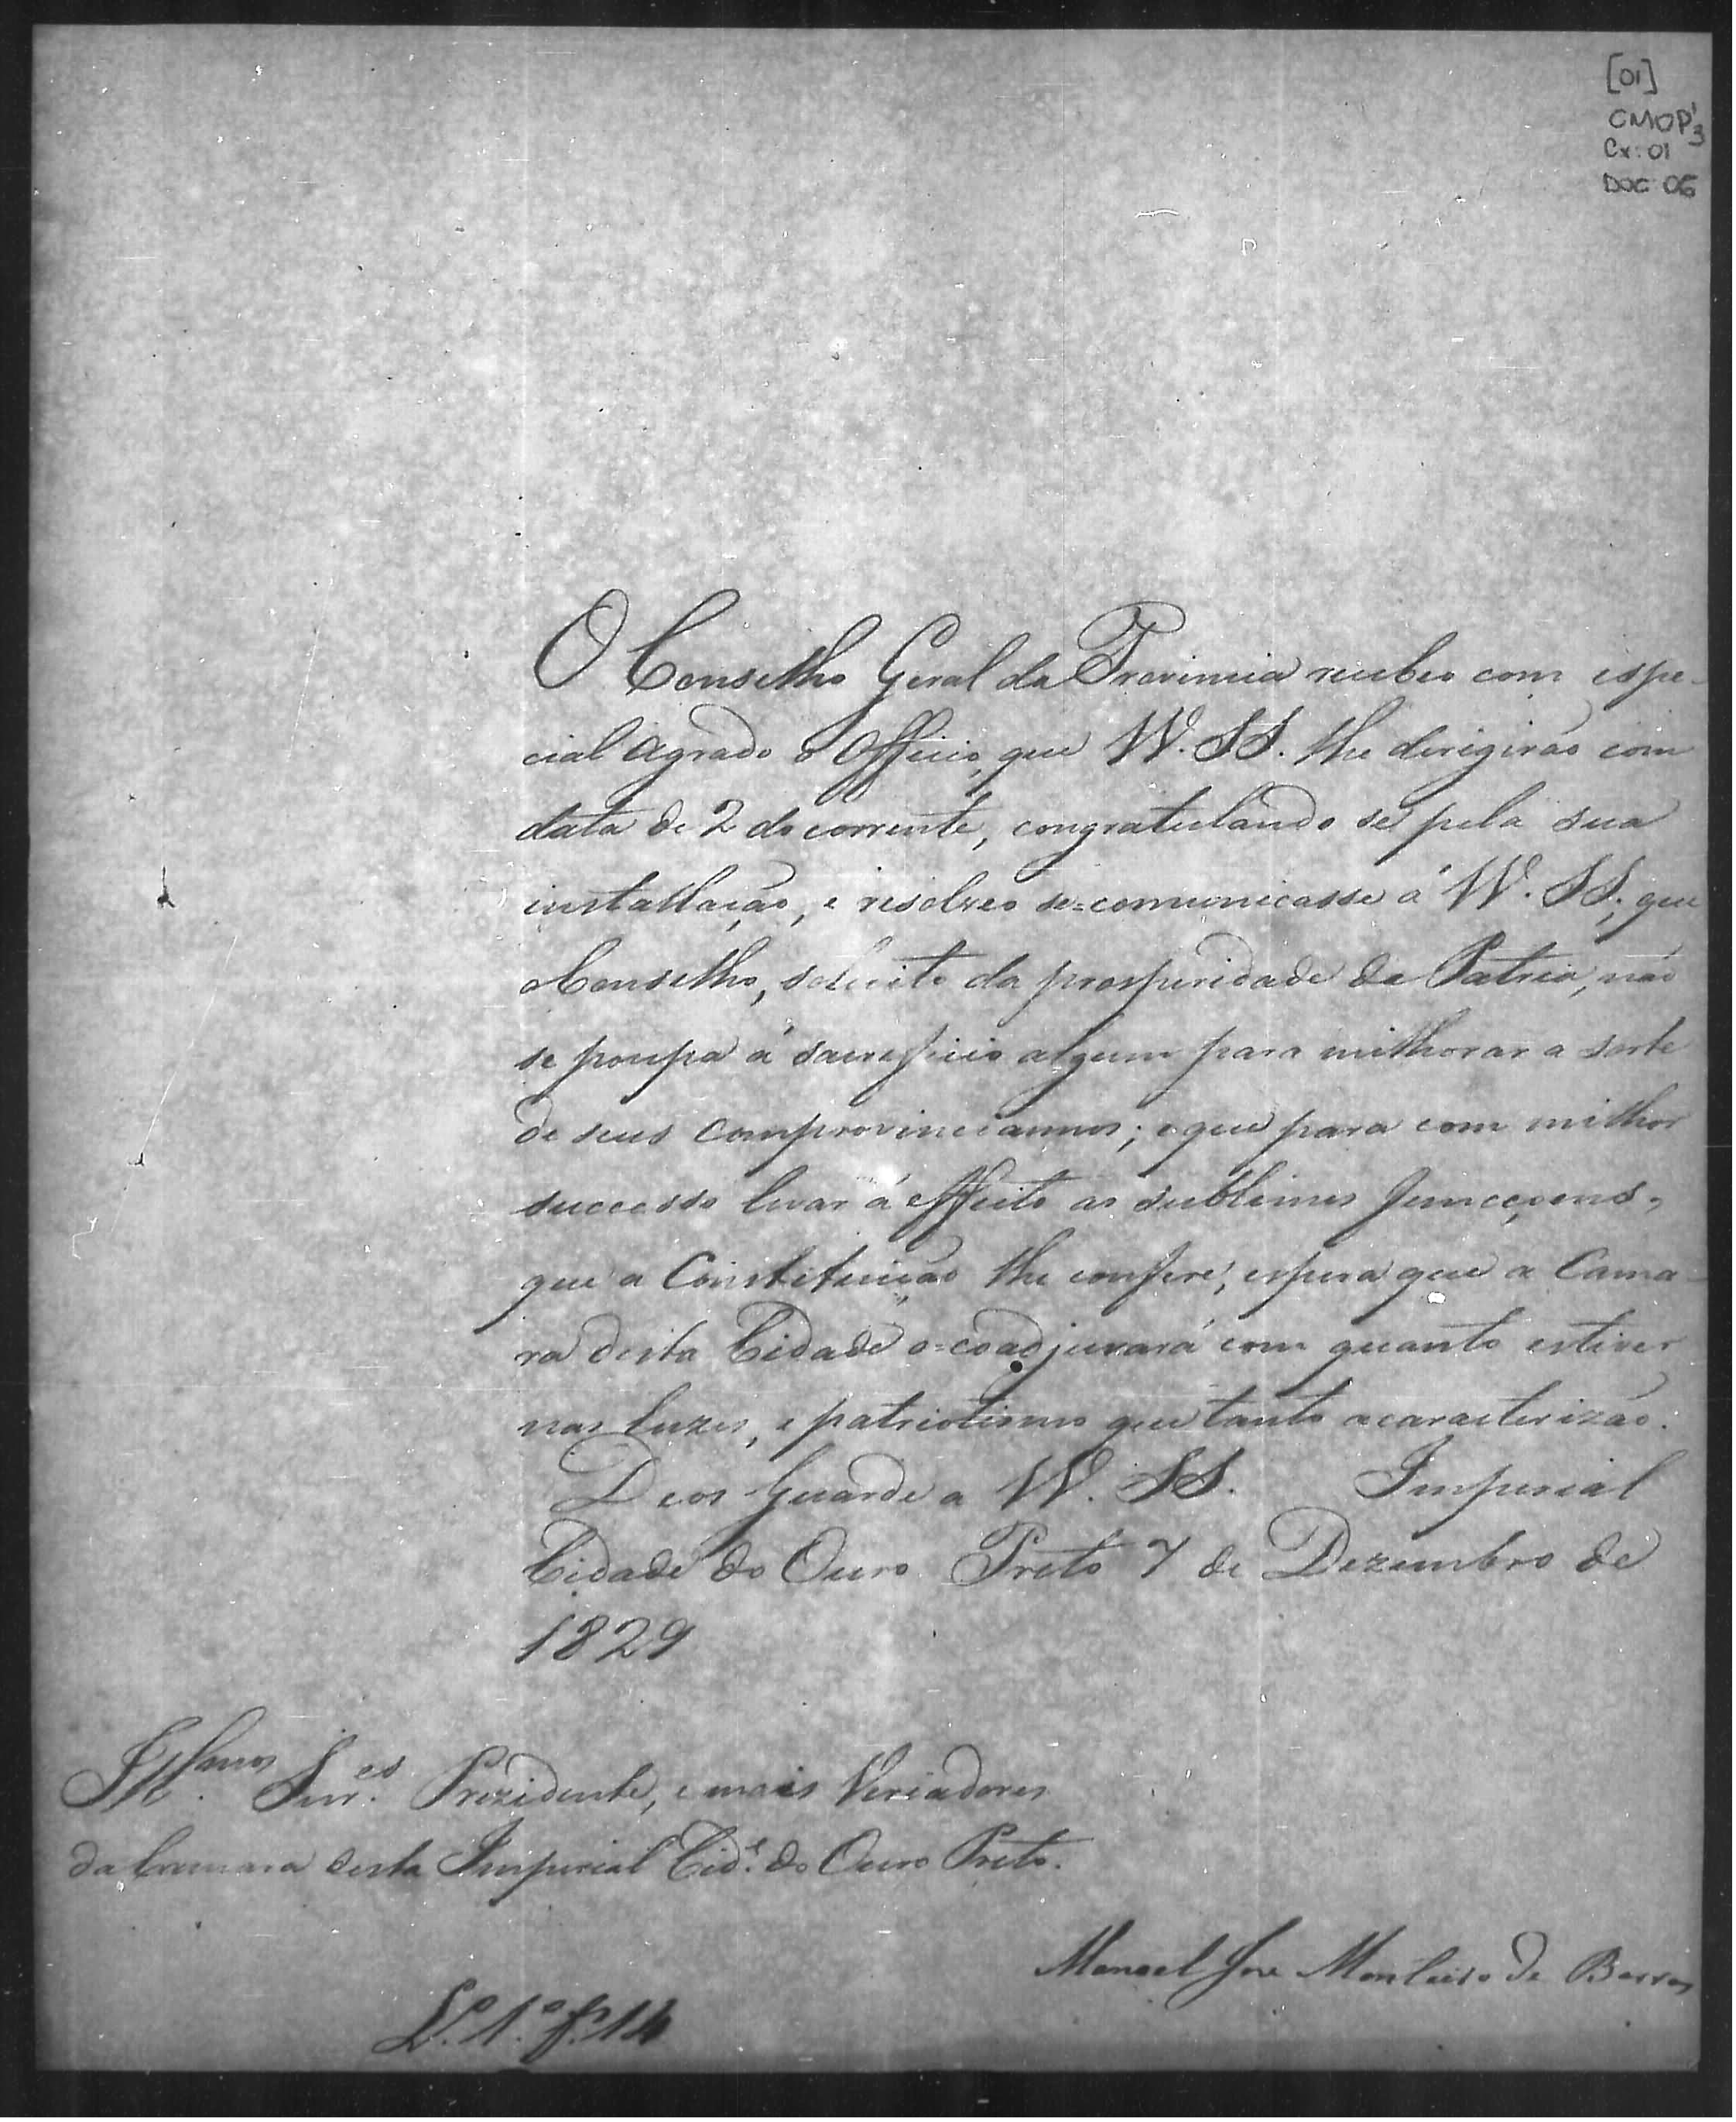 [01]
CMOP 1/3
Cx: 01
DOC 06
O Conselho Geral da Provincia recebeo com espe-
cial agrado o Officio, que VV. SS. lhe dirigirão com
data de 2 do corrente, congratulando se pela sua
installação, e resolveo se=comunicasse á VV. SS., que
o Conselho, solicito da prosperidade da Patria, não
se poupa á sacreficio algum para milhorar a sorte
de seus comprovincianos; e que para com milhor
successo levar á effeito as sublimes funcçoens,
que a Constituição lhe confere, espera que a Cama-
ra desta Cidade o=coadjuvará com quanto estiver
nas luzes, e patriotismo que tanto a caracterizão.
Deos Guarde a VV. SS. Imperial
Cidade do Ouro Preto 7 de Dezembro de
1829
Ill.mos Snr.es Prezidente, e mais Veriadores
da Camara desta Imperial Cid.e do Ouro Preto.
Manoel José Monteiro de Barros
L.o 1.o f. 14